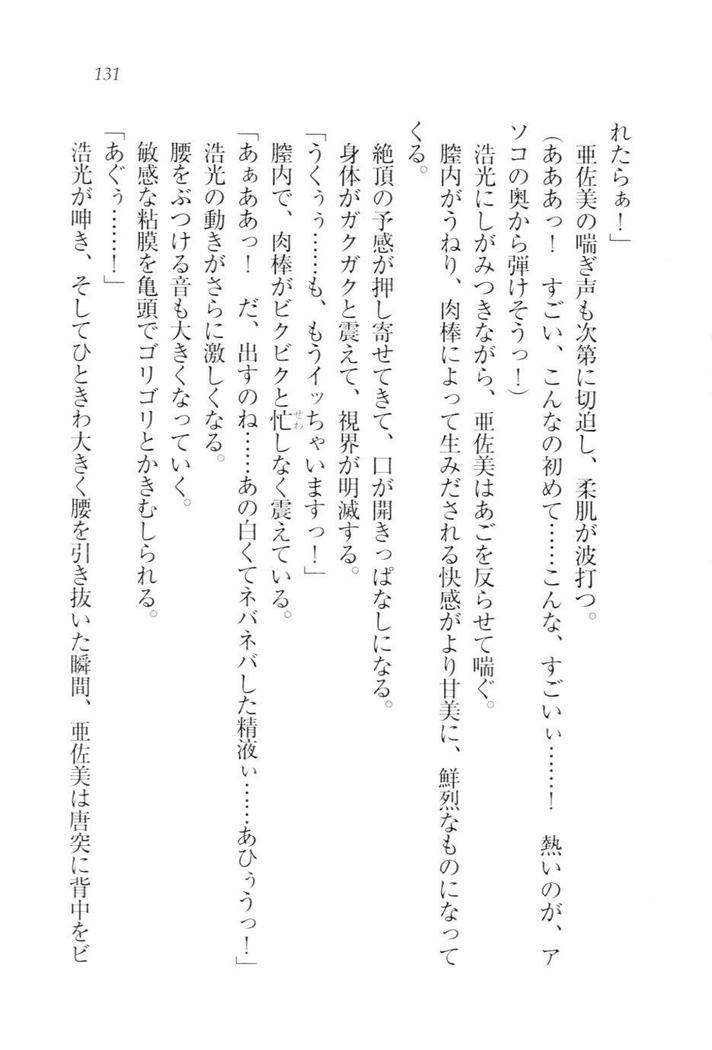 131
れたらぁ！」
亜佐美の喘ぎ声も次第に切迫し、柔肌が波打つ。
（あああっ！　すごい、こんなの初めて……こんな、すごいぃ……！　熱いのが、ア
ソコの奥から弾けそうっ！）
浩光にしがみつきながら、亜佐美はあごを反らせて喘ぐ。
膣内がうねり、肉棒によって生みだされる快感がより甘美に、鮮烈なものになって
くる。
絶頂の予感が押し寄せてきて、口が開きっぱなしになる。
身体がガクガクと震えて、視界が明滅する。
「うくぅぅ……も、もうイッちゃいますっ！」
膣内で、肉棒がビクビクと忙せわしなく震えている。
「あぁああっ！　だ、出すのね……あの白くてネバネバした精液ぃ……あひぅうっ！」
浩光の動きがさらに激しくなる。
腰をぶつける音も大きくなっていく。
敏感な粘膜を亀頭でゴリゴリとかきむしられる。
「あぐぅ……！」
浩光が呻き、そしてひときわ大きく腰を引き抜いた瞬間、亜佐美は唐突に背中をビ